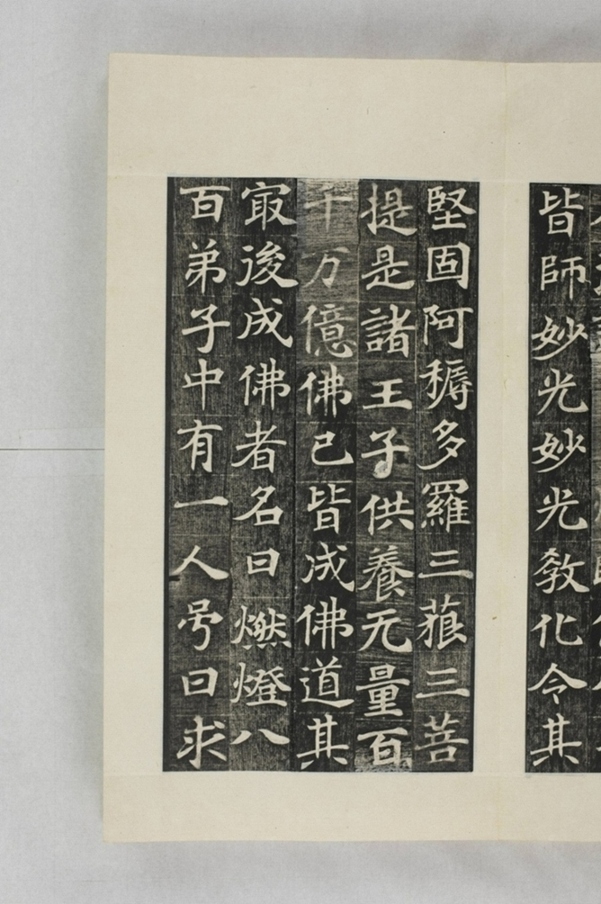 皆師妙光妙光教化令其
堅固阿耨多羅三藐三菩
提是諸王子供養无量百
千万億佛已皆成佛道其
冣後成佛者名曰燃燈八
百弟子中有一人号曰求